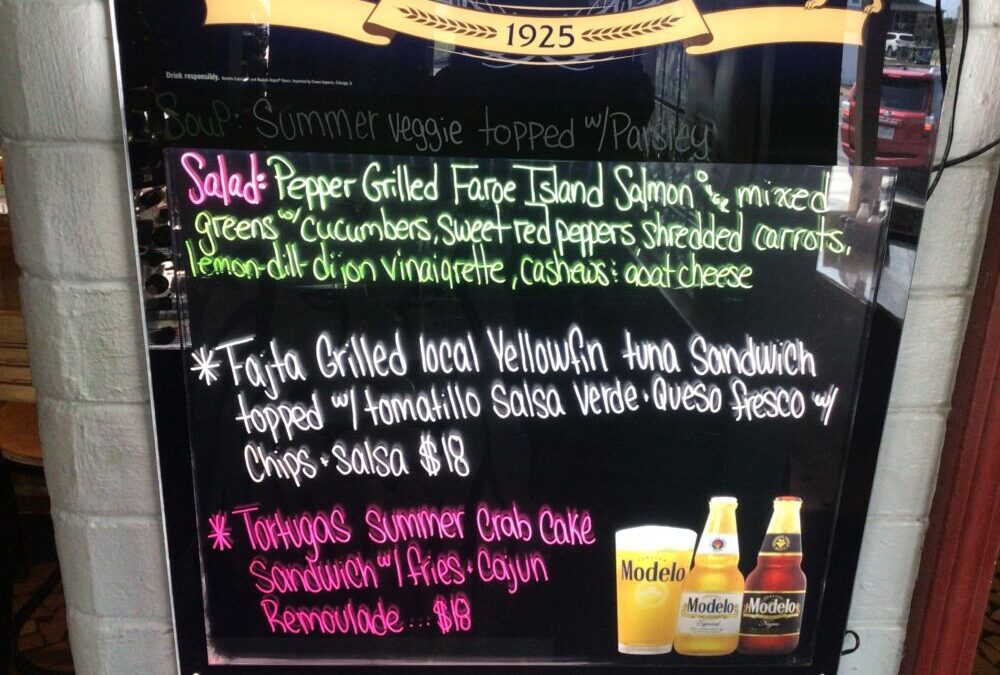 1925
Drink responsibly.
Soup: Summer veggie topped w/Parsley
Salad: Pepper Grilled Faroe Island Salmon mixed
greens w/ cucumbers, sweet red peppers, shredded carrots,
lemon-dill-dijon vinaigrette, cashews : goat cheese
*Fajta Grilled local Yellowfin tuna Sandwich
topped w/ tomatillo Salsa Verde + Queso fresco w/
Chips + salsa $18
*Tortugas Summer Crab Cake
Sandwich w/ fries + Cajun
Remoulade... $18
Modelo
Modelo
Especial
Modelo
Negra